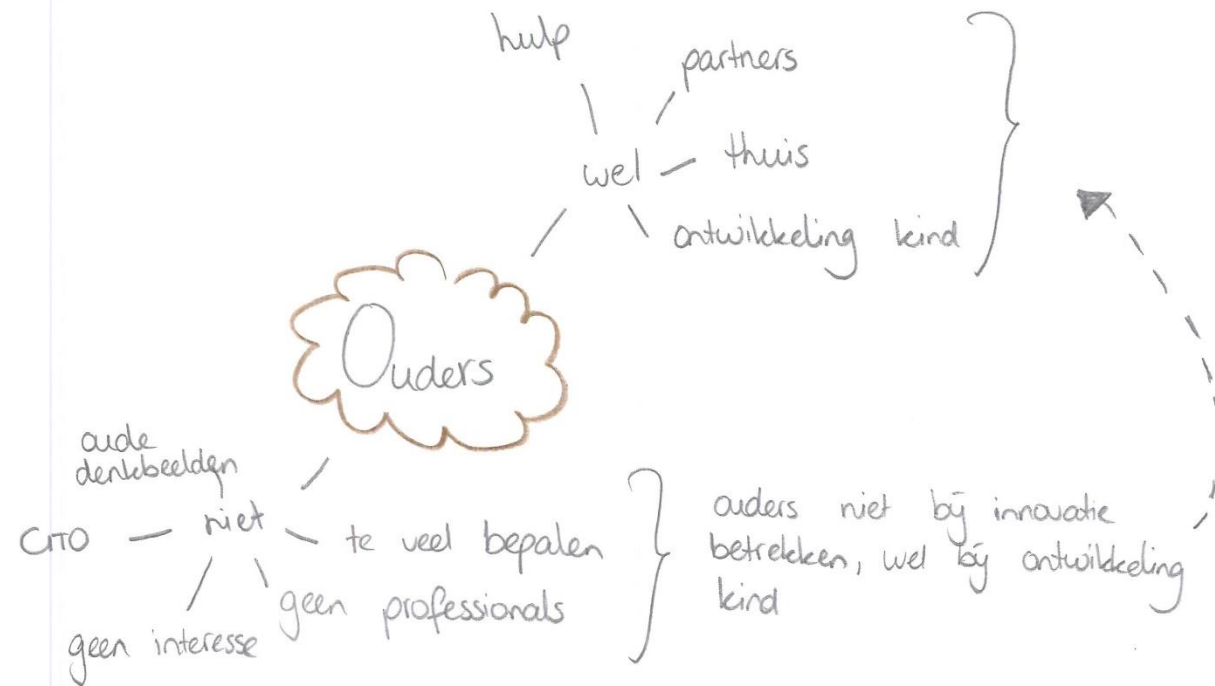 hulp
partners
wel
thuis
ontwikkeling kind
Ouders
oude
denkbeelden
niet
CITO
te veel bepalen
geen professionals
geen interesse
ouders niet bij innovatie
betrekken, wel bij ontwikkeling
kind